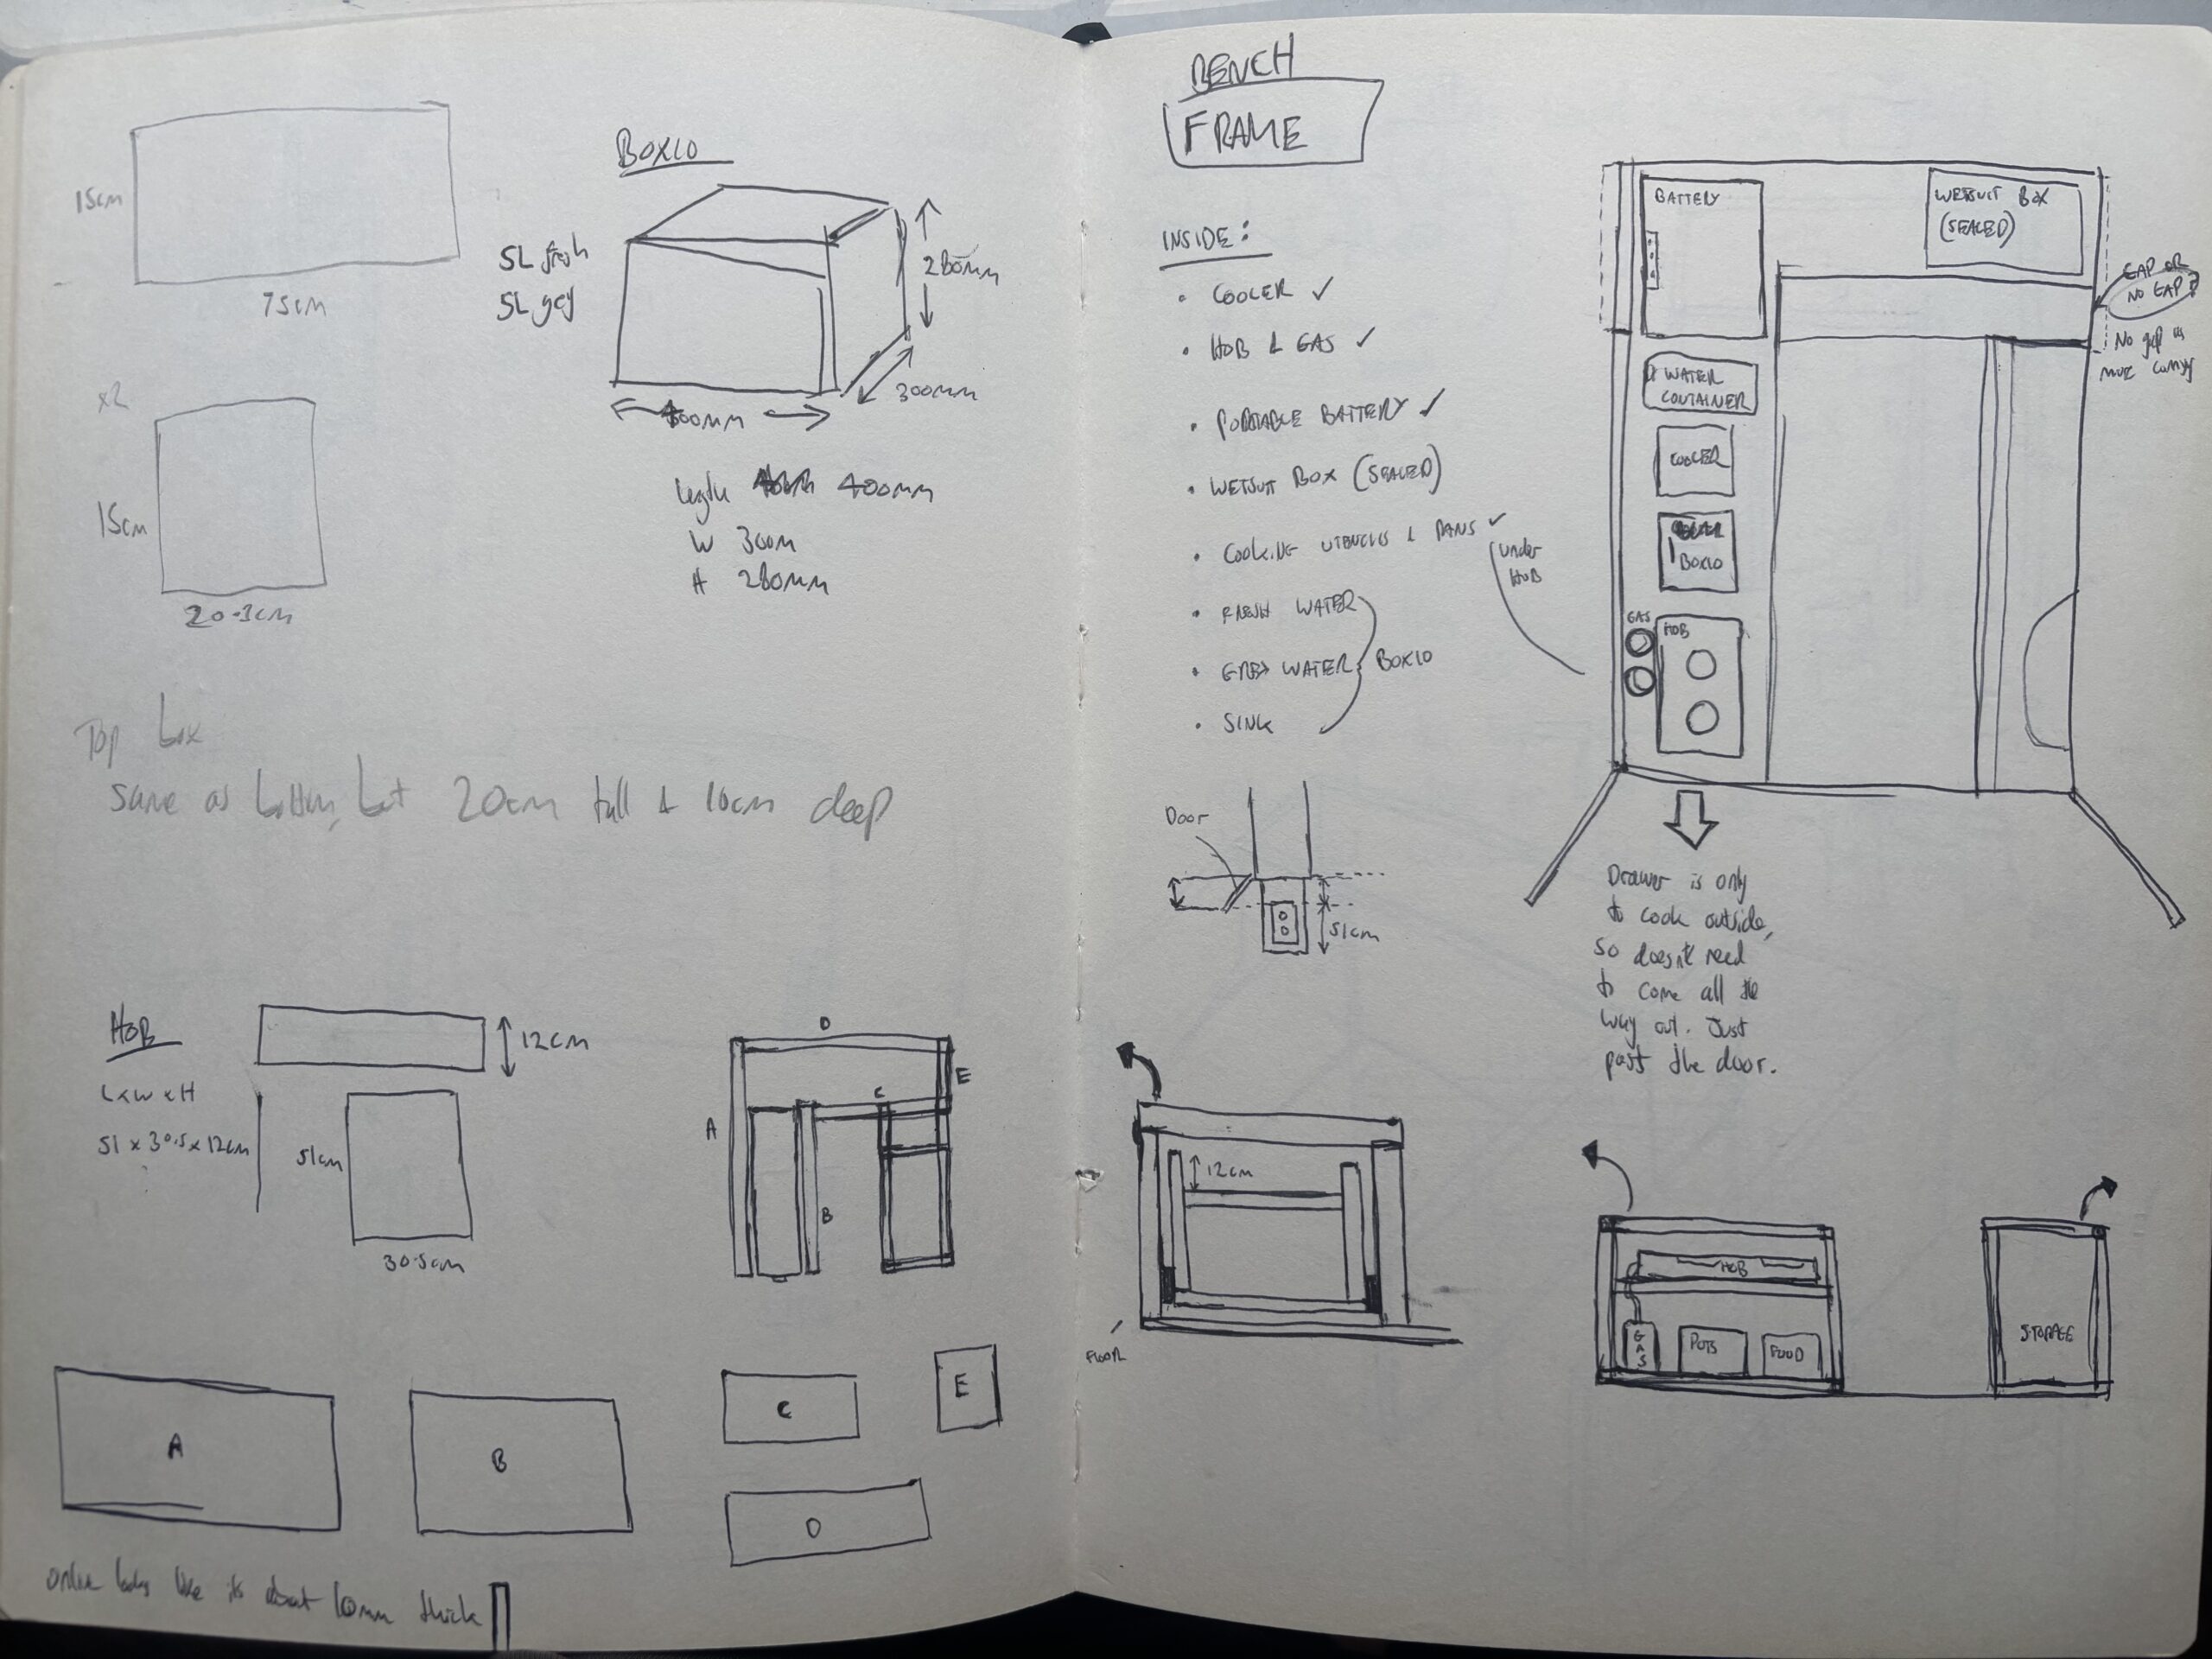 15cm
75cm
x2
15cm
20.3cm
BOXIO
5L fresh
5L grey
280mm
300mm
400mm
length 400mm
W 300m
H 280mm
Top box
same as bottom, but 20cm tall & 10cm deep
HOB
L x W x H
51 x 30.5 x 12cm
12cm
51cm
30.5cm
D
E
C
A
B
A
B
C
E
D
online looks like its about 10mm thick
BENCH
FRAME
INSIDE:
• COOLER ✓
• HOB & GAS ✓
• PORTABLE BATTERY ✓
• WETSUIT BOX (SEALED)
• COOKING UTENCILS & PANS ✓
under
HOB
• FRESH WATER
• GREY WATER
BOXIO
• SINK
Door
51cm
12cm
FLOOR
BATTERY
WETSUIT BOX
(SEALED)
GAP OR
NO GAP?
No gap is
more comfy
WATER
CONTAINER
COOLER
BOXIO
GAS
HOB
Drawer is only
to cook outside,
so doesn't need
to come all the
way out. Just
past the door.
HOB
GAS
POTS
FOOD
STORAGE